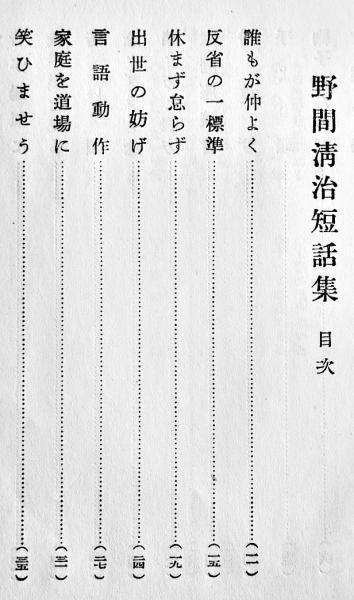 野間清治短話集 目次
誰もが仲よく……(一一)
反省の一標準……(一五)
休まず怠らず……(一九)
出世の妨げ……(二四)
言語動作……(二七)
家庭を道場に……(三一)
笑ひませう……(三五)